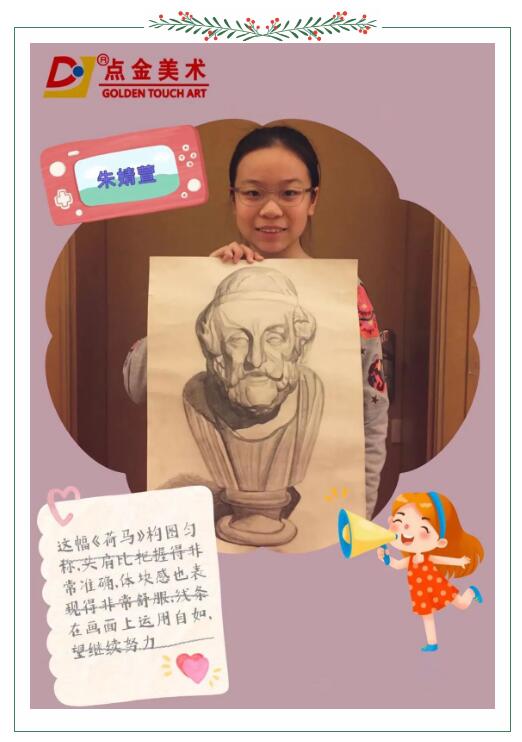 R
点金美术
GOLDEN TOUCH ART
朱婧萱
这幅《荷马》构图匀
称，头肩比把握得非
常准确，体块感也表
现得非常舒服，线条
在画面上运用自如，
望继续努力